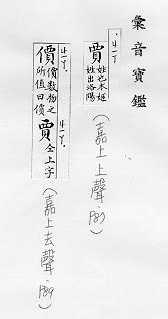 彙音寶鑑
賈 姓也本姬
姓出洛陽
(嘉上上聲·
價 價數物之
所值曰價
賈 仝上字
(嘉上去聲·P89)